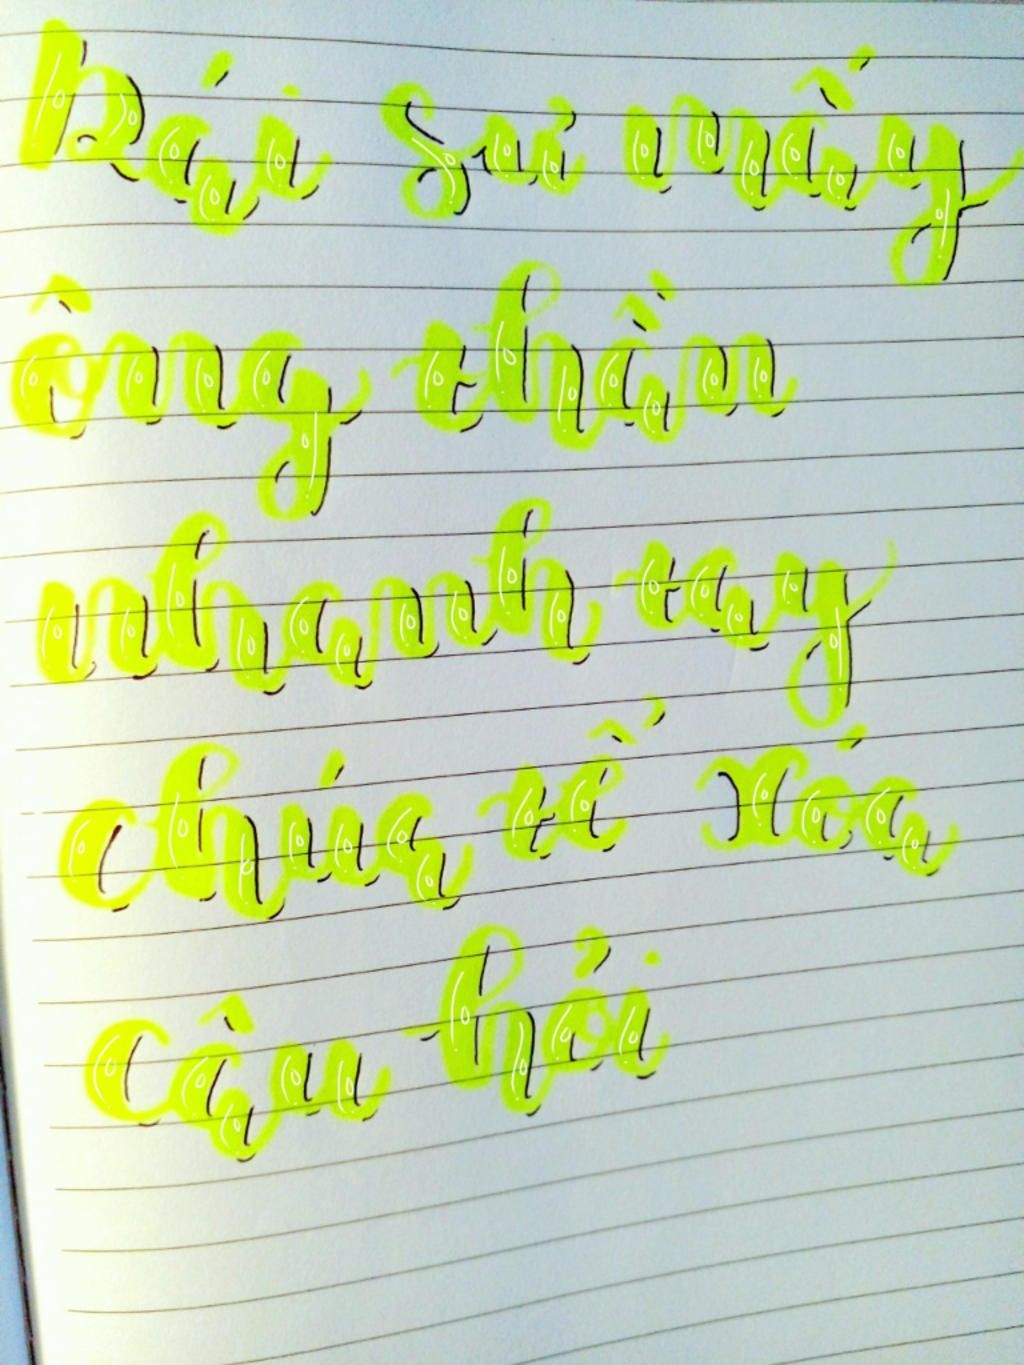 Bái sư mấy
ông thần
nhanh tay
chúa tể xóa
câu hỏi